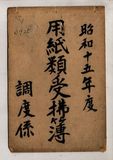 昭和十五年度
用紙類受拂簿
調度係